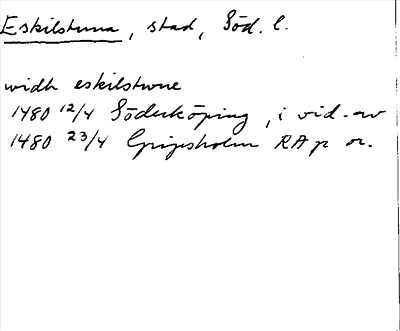 Eskilstuna, stad, Söd. l.
widh eskilstwne
1480 12/4 Söderköping, i vid. av
1480 23/4 Gripsholm RAp or.